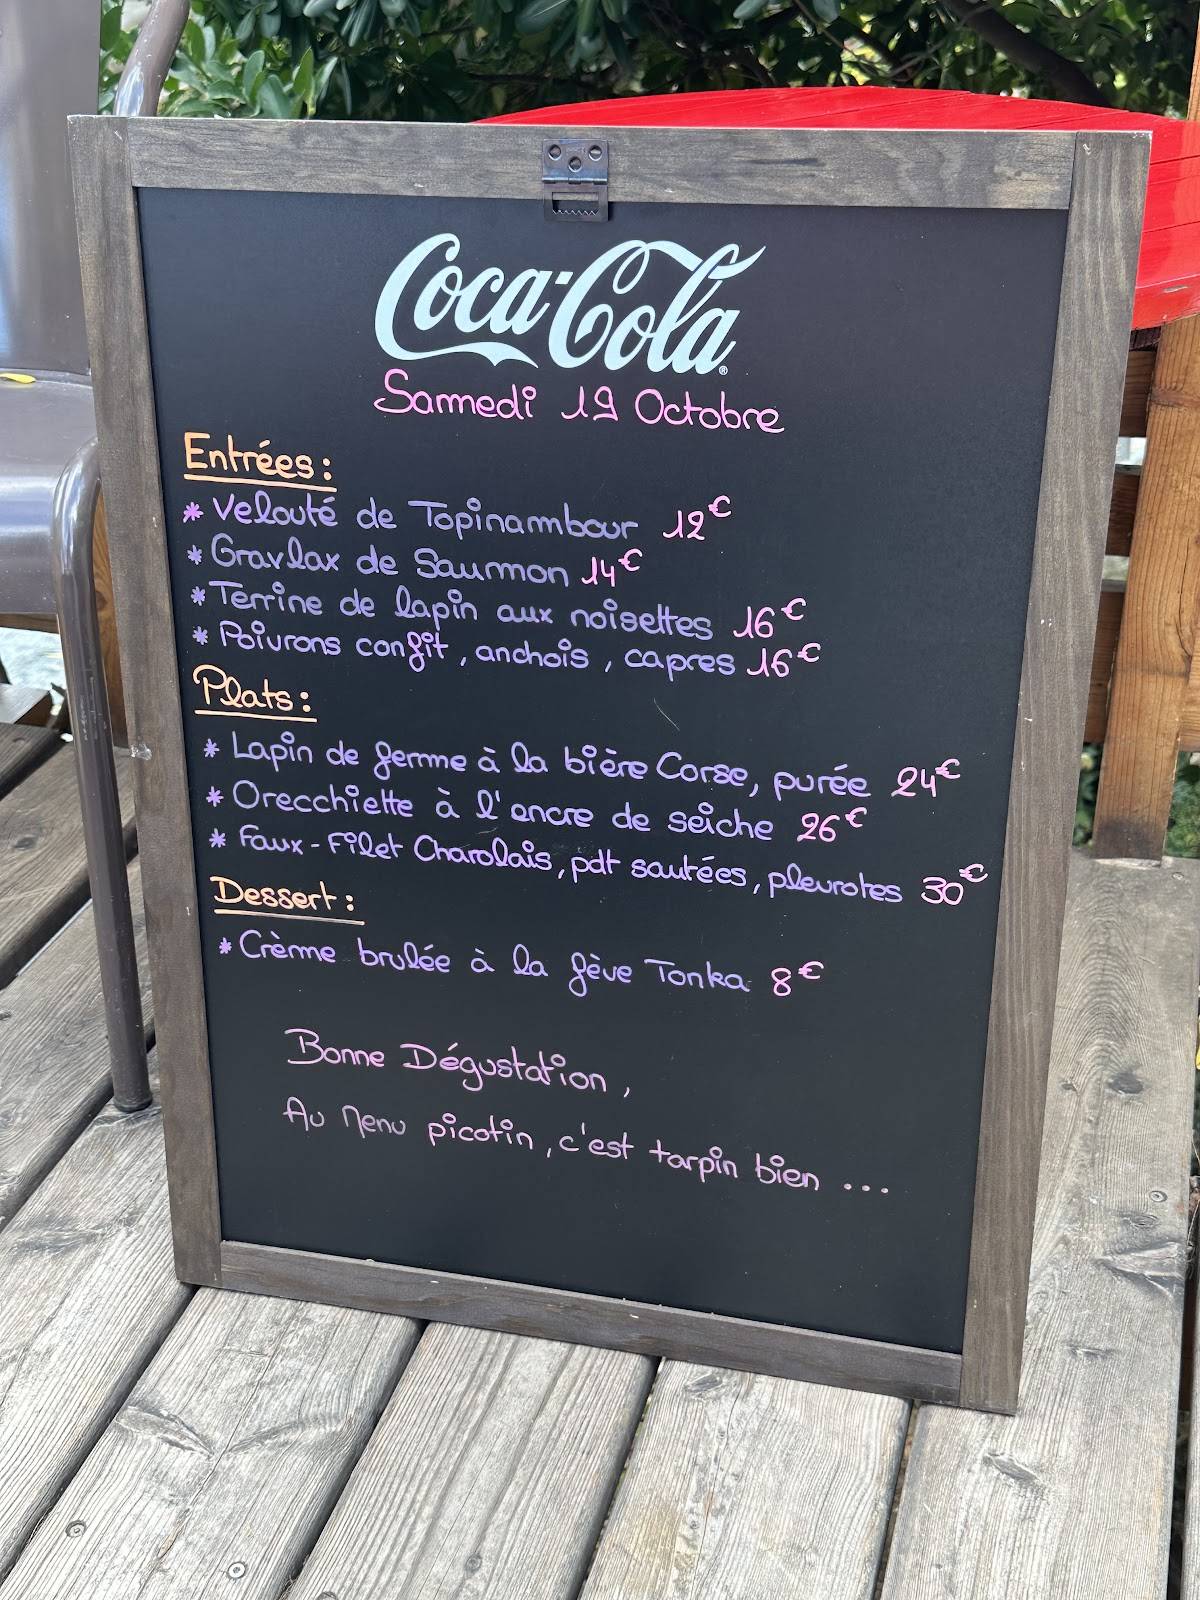 Coca-Cola
Samedi 19 Octobre
Entrées :
* Velouté de Topinambour 12€
* Gravlax de Saumon 14€
* Terrine de lapin aux noisettes 16€
* Poivrons confit, anchois, capres 16€
Plats :
* Lapin de ferme à la bière Corse, purée 24€
* Orecchiette à l'encre de seiche 26€
* Faux-Filet Charolais, pdt sautées, pleurotes 30€
Dessert :
* Crème brulée à la fève Tonka 8€
Bonne Dégustation,
Au Menu picotin, c'est tarpin bien ...